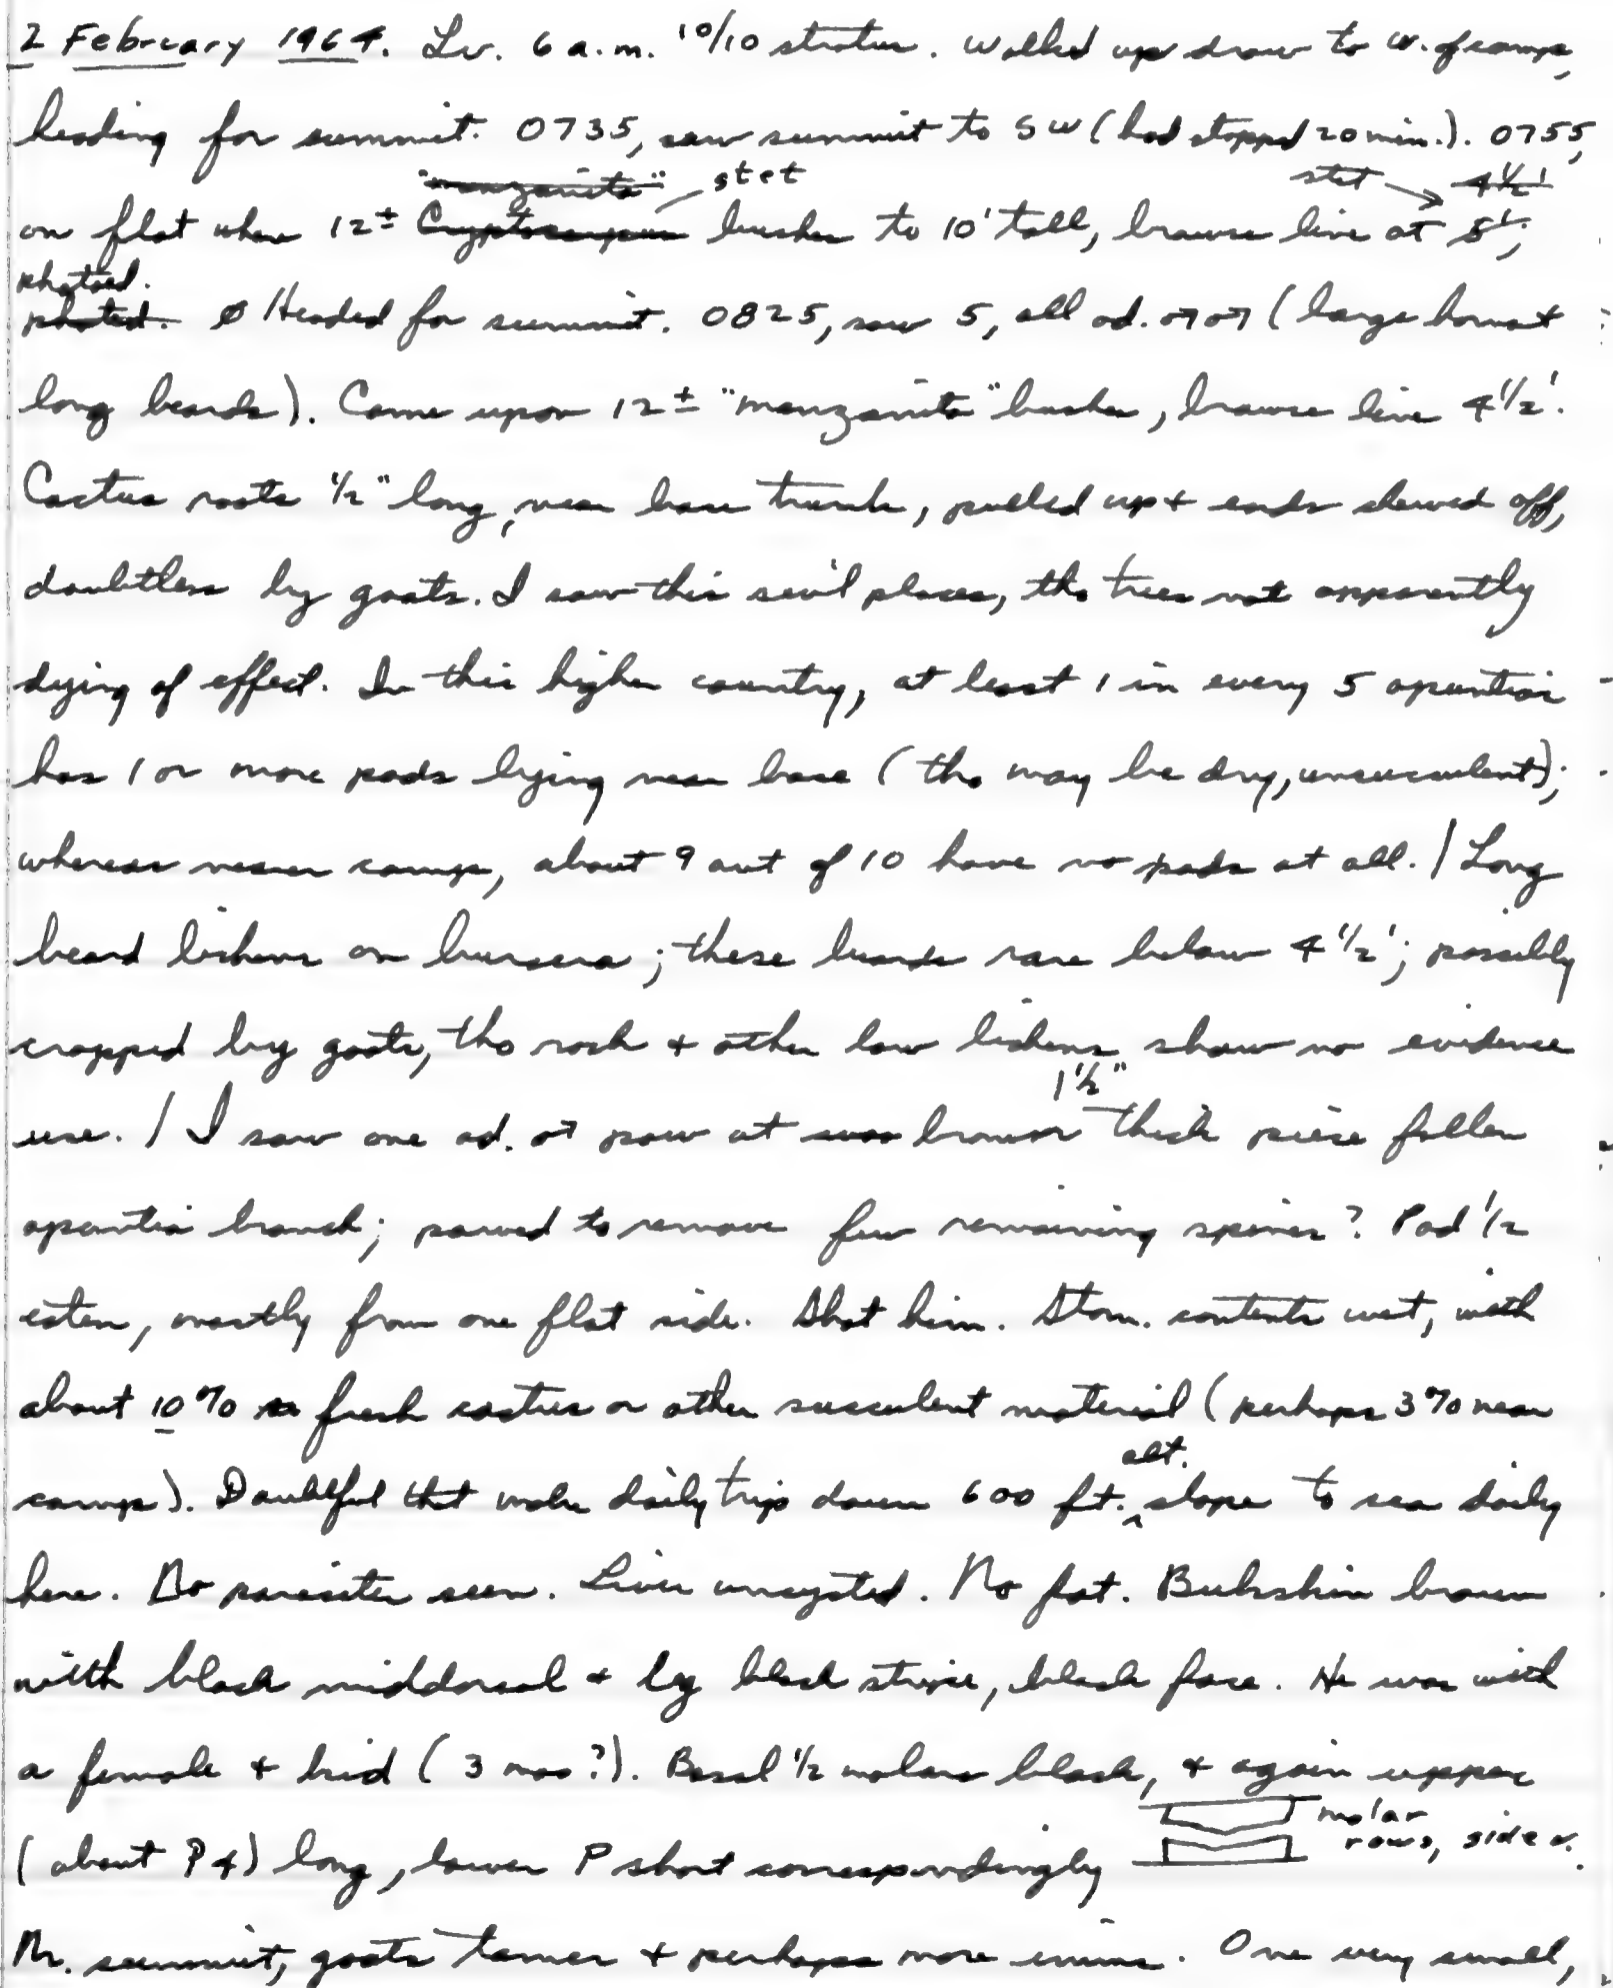 2 February 1964. Lv. 6 a.m. 10/10 stratus. Walked up draw to w. of camp,
heading for summit. 0735, saw summit to SW (had stopped 20 min.). 0755,
"manzanita" stet stet → 4½'
on flat where 12± Cryptocarpus bushes to 10' tall, browse line at 5';
photoed.
photed. Headed for summit. 0825, saw 5, all ad. ♂♂ (large horns &
long beards). Came upon 12± "manzanita" bushes, browse line 4½'.
Cactus roots ½" long, near base trunk, pulled up & ends chewed off,
doubtless by goats. I saw this sev'l places, tho trees not apparently
dying of effect. In this higher country, at least 1 in every 5 opuntias
has 1 or more pads lying near base (tho may be dry, unsucculent);
whereas nearer camp, about 9 out of 10 have no pads at all. / Long
beard lichens on bursera; these beards rare below 4½'; possibly
cropped by goats, tho rock & other low lichens show no evidence
1½"
use. / I saw one ad. ♂ paw at was brown thick piece fallen
opuntia branch; pawed to remove few remaining spines? Pad ½
eaten, mostly from one flat side. Shot him. Stom. contents wet, with
about 10% fresh cactus or other succulent material (perhaps 3% near
alt.
camp). Doubtful that make daily trip down 600 ft. slope to sea daily
here. No parasites seen. Liver uncysted. No fat. Buckskin brown
with black middorsal & leg black stripe, black face. He was with
a female & kid (3 mos?). Basal ½ molars black, & again upper
molar
(about P4) long, lower P short correspondingly rows, side v.
Nr. summit, goats tamer & perhaps more enims. One very small,